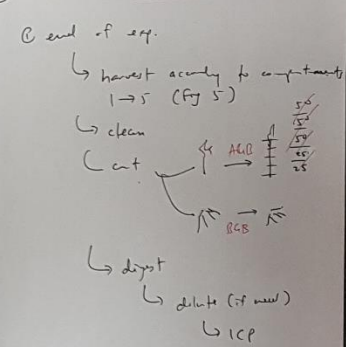 @ end of exp.
↳ harvest accordly to compartments
1 → 5 (Fig 5)
↳ clean
cut
AGB
25
BGB
↳ digest
↳ dilute (if need)
↳ ICP